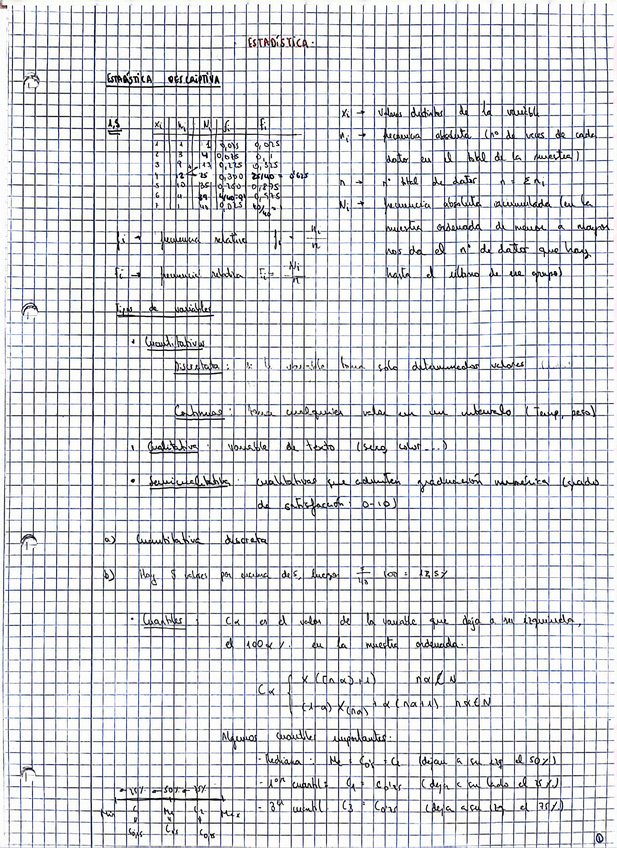 ESTADÍSTICA.
ESTADÍSTICA DESCRIPTIVA
1,3 xi | ni | Ni | fi | Fi
1 1 1 0,025 0,025
2 3 4 0,075 0,1
3 9 13 0,225 0,325
4 12 25 0,300 25/40 = 0,625
5 10 35 0,250 0,875
6 4 39 4/40=0,1 0,975
7 1 40 0,025 40/40 = 1
xi → Valores distintos de la variable
ni → frecuencia absoluta (nº de veces de cada
dator en el total de la muestra)
n → nº total de dator n = Σ ni
Ni → frecuencia absoluta acumulada (en la
muestra ordenada de menor a mayor
nos da el nº de dator que hay
hasta el último de ese grupo)
fi → frecuencia relativa fi = ni/n
Fi → frecuencia relativa Fi = Ni/n
Tipos de variables
• Cuantitativas
Discretata: si la variable toma solo determinador valores
Continuas: toma cualquier valor en un intervalo (Temp, peso)
• Cualitativa: variable de texto (sexo, color...)
• Semicualitativa: cualitativas que admiten graduación numérica (grado
de satisfacción 0-10)
a) Cuantitativa discreta
b) Hay 5 valores por encima de 5, luego 5/40 · 100 = 12,5%
• Cuantiles: Cα es el valor de la variable que deja a su izquierda,
el 100α % en la muestra ordenada.
Cα { X([nα]+1) nα ∉ N
(1-α) X(nα) + α (nα+1) nα ∈ N
Algunos cuantiles importantes:
- Mediana: Me = C0,5 = C2 (dejan a su izq el 50%)
- 1er cuantil: C1 = C0,25 (deja a su lado el 25%)
- 3er cuantil C3 = C0,75 (deja a su izq el 75%)
25% 50% 25%
Min C1 Me C3 Max
①